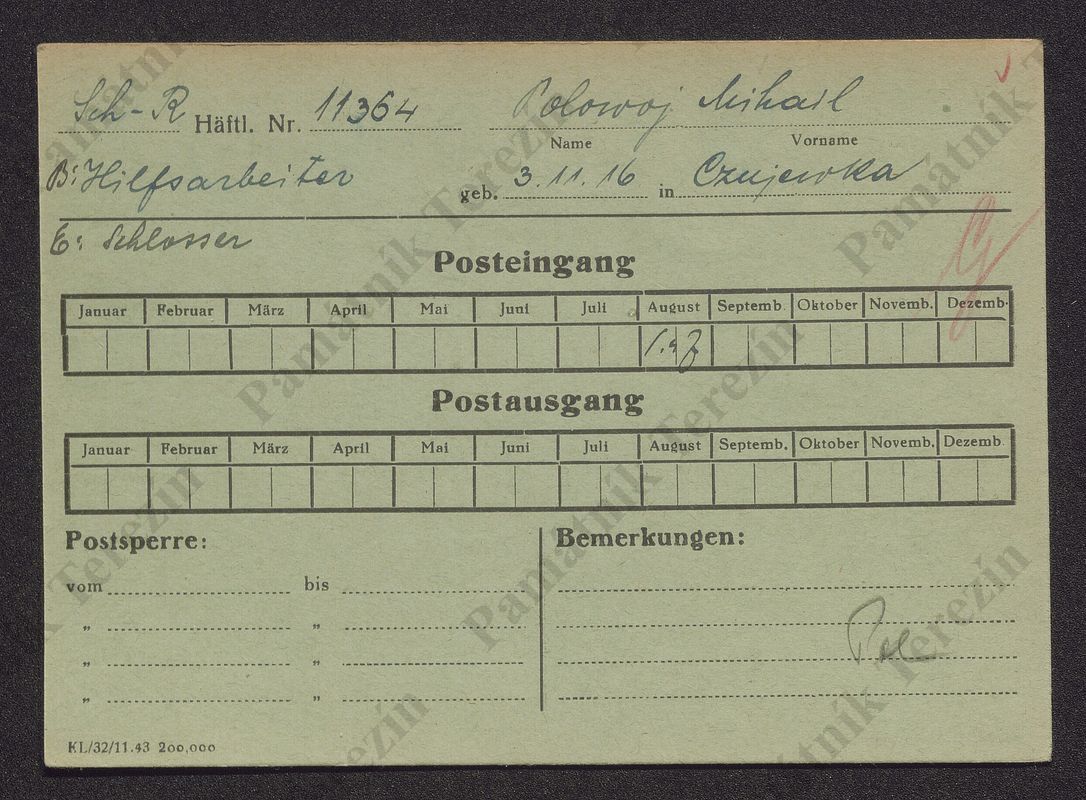 Sch-R Häftl. Nr. 11364 Polowoj Mihail
Name Vorname
B: Hilfsarbeiter geb. 3.11.16 in
E: Schlosser
Posteingang
Januar Februar März April Mai Juni Juli August Septemb. Oktober Novemb. Dezemb.
Postausgang
Januar Februar März April Mai Juni Juli August Septemb. Oktober Novemb. Dezemb.
Postsperre: Bemerkungen:
vom bis
" "
" "
" "
Pol
KL/32/11.43 200,000
Památník Terezín